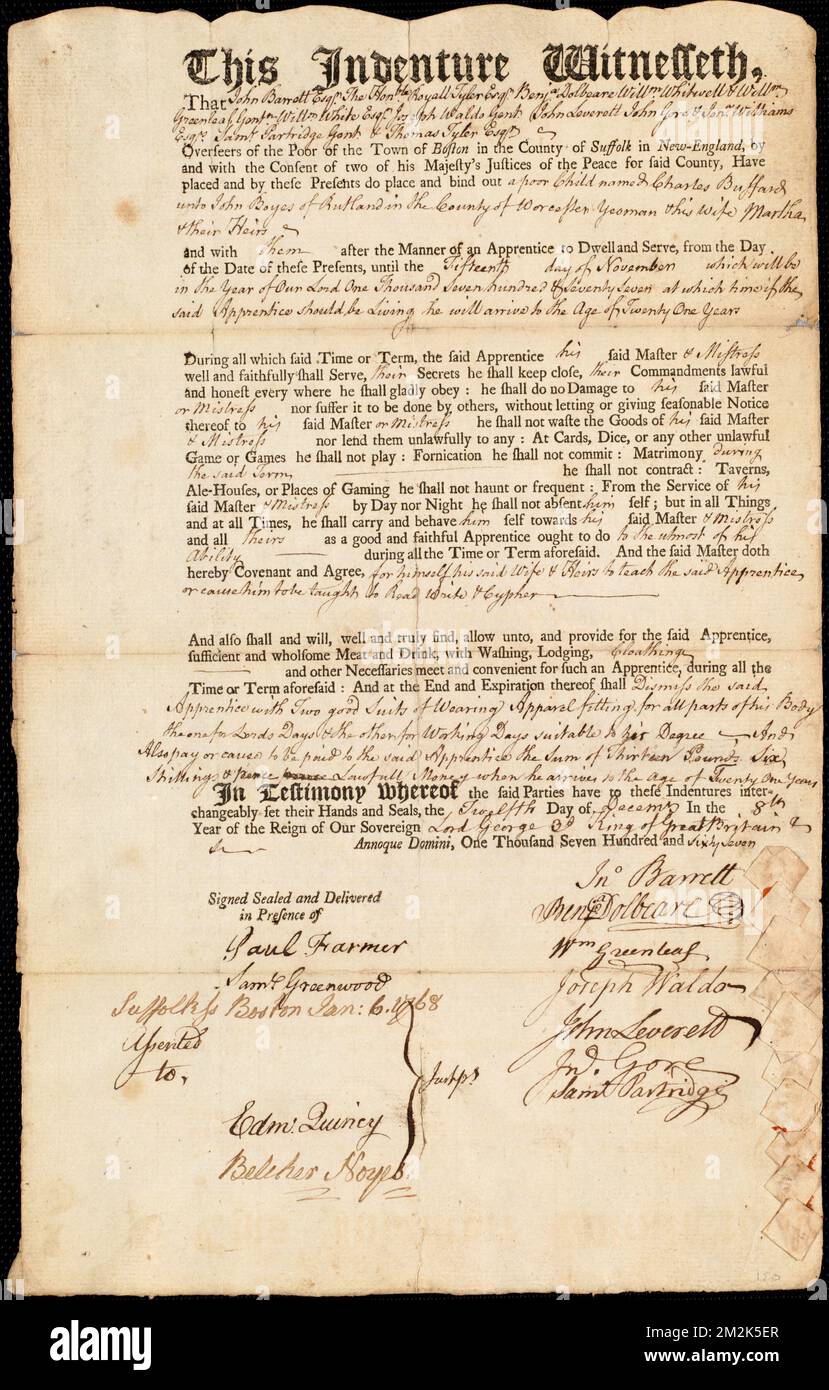 This Indenture Witnesseth,
That John Barrett Esqr. The Honble Royall Tyler Esqr. Benja. Dolbeare Willm Whitwell & Willm
Greenleaf Gentn Willm White Esqr. Joseph Waldo Gent John Leverett John Gore & Jonn Williams
Esqrs. Saml. Partridge Gent & Thomas Tyler Esqr.
Overseers of the Poor of the Town of Boston in the County of Suffolk in New-England, by
and with the Consent of two of his Majesty's Justices of the Peace for said County, Have
placed and by these Presents do place and bind out a poor Child named Charles Buffard
unto John Boyes of Rutland in the County of Worcester Yeoman & his Wife Martha
& their Heirs
and with them after the Manner of an Apprentice to Dwell and Serve, from the Day
of the Date of these Presents, until the Fifteenth day of November which will be
in the Year of Our Lord One Thousand Seven hundred & Seventy Seven at which time if the
said Apprentice should be Living he will arrive to the Age of Twenty One Years
During all which said Time or Term, the said Apprentice his said Master & Mistress
well and faithfully shall Serve, their Secrets he shall keep close, their Commandments lawful
and honest every where he shall gladly obey : he shall do no Damage to his said Master
or Mistress nor suffer it to be done by others, without letting or giving seasonable Notice
thereof to his said Master or Mistress he shall not waste the Goods of his said Master
& Mistress nor lend them unlawfully to any : At Cards, Dice, or any other unlawful
Game or Games he shall not play : Fornication he shall not commit : Matrimony during
the said Term he shall not contract : Taverns,
Ale-Houses, or Places of Gaming he shall not haunt or frequent : From the Service of his
said Master & Mistress by Day nor Night he shall not absent him self ; but in all Things
and at all Times, he shall carry and behave him self towards his said Master & Mistress
and all theirs as a good and faithful Apprentice ought to do to the utmost of his
Ability during all the Time or Term aforesaid. And the said Master doth
hereby Covenant and Agree, for himself his said Wife & Heirs to teach the said Apprentice
or cause him to be taught to Read Write & Cypher
And also shall and will, well and truly find, allow unto, and provide for the said Apprentice,
sufficient and wholsome Meat and Drink, with Washing, Lodging, Cloathing
and other Necessaries meet and convenient for such an Apprentice, during all the
Time or Term aforesaid : And at the End and Expiration thereof shall Dismiss the said
Apprentice with Two good Suits of Wearing Apparel fitting for all parts of his Body
the one for Lords Days & the other for Working Days suitable to his Degree And
Also pay or cause to be paid to the said Apprentice the Sum of Thirteen Pounds Six
Shillings & pence Lawfull Money when he arrives to the Age of Twenty One Years
In Testimony whereof the said Parties have to these Indentures inter-
changeably set their Hands and Seals, the Twelfth Day of Decemr. In the 8th
Year of the Reign of Our Sovereign Lord George 3d King of Great Britain &
Annoque Domini, One Thousand Seven Hundred and Sixty Seven
Signed Sealed and Delivered
in Presence of
Paul Farmer
Saml. Greenwood
Suffolk ss Boston Jan: 6. 1768
Assented
to,
Justps
Edm. Quincy
Belcher Noyes.
Jno Barrett
Benja Dolbeare
Wm Greenleaf
Joseph Waldo
John Leverett
Jno. Gore
Saml Partridge
alamy
Image ID: 2M2K5ER
www.alamy.com